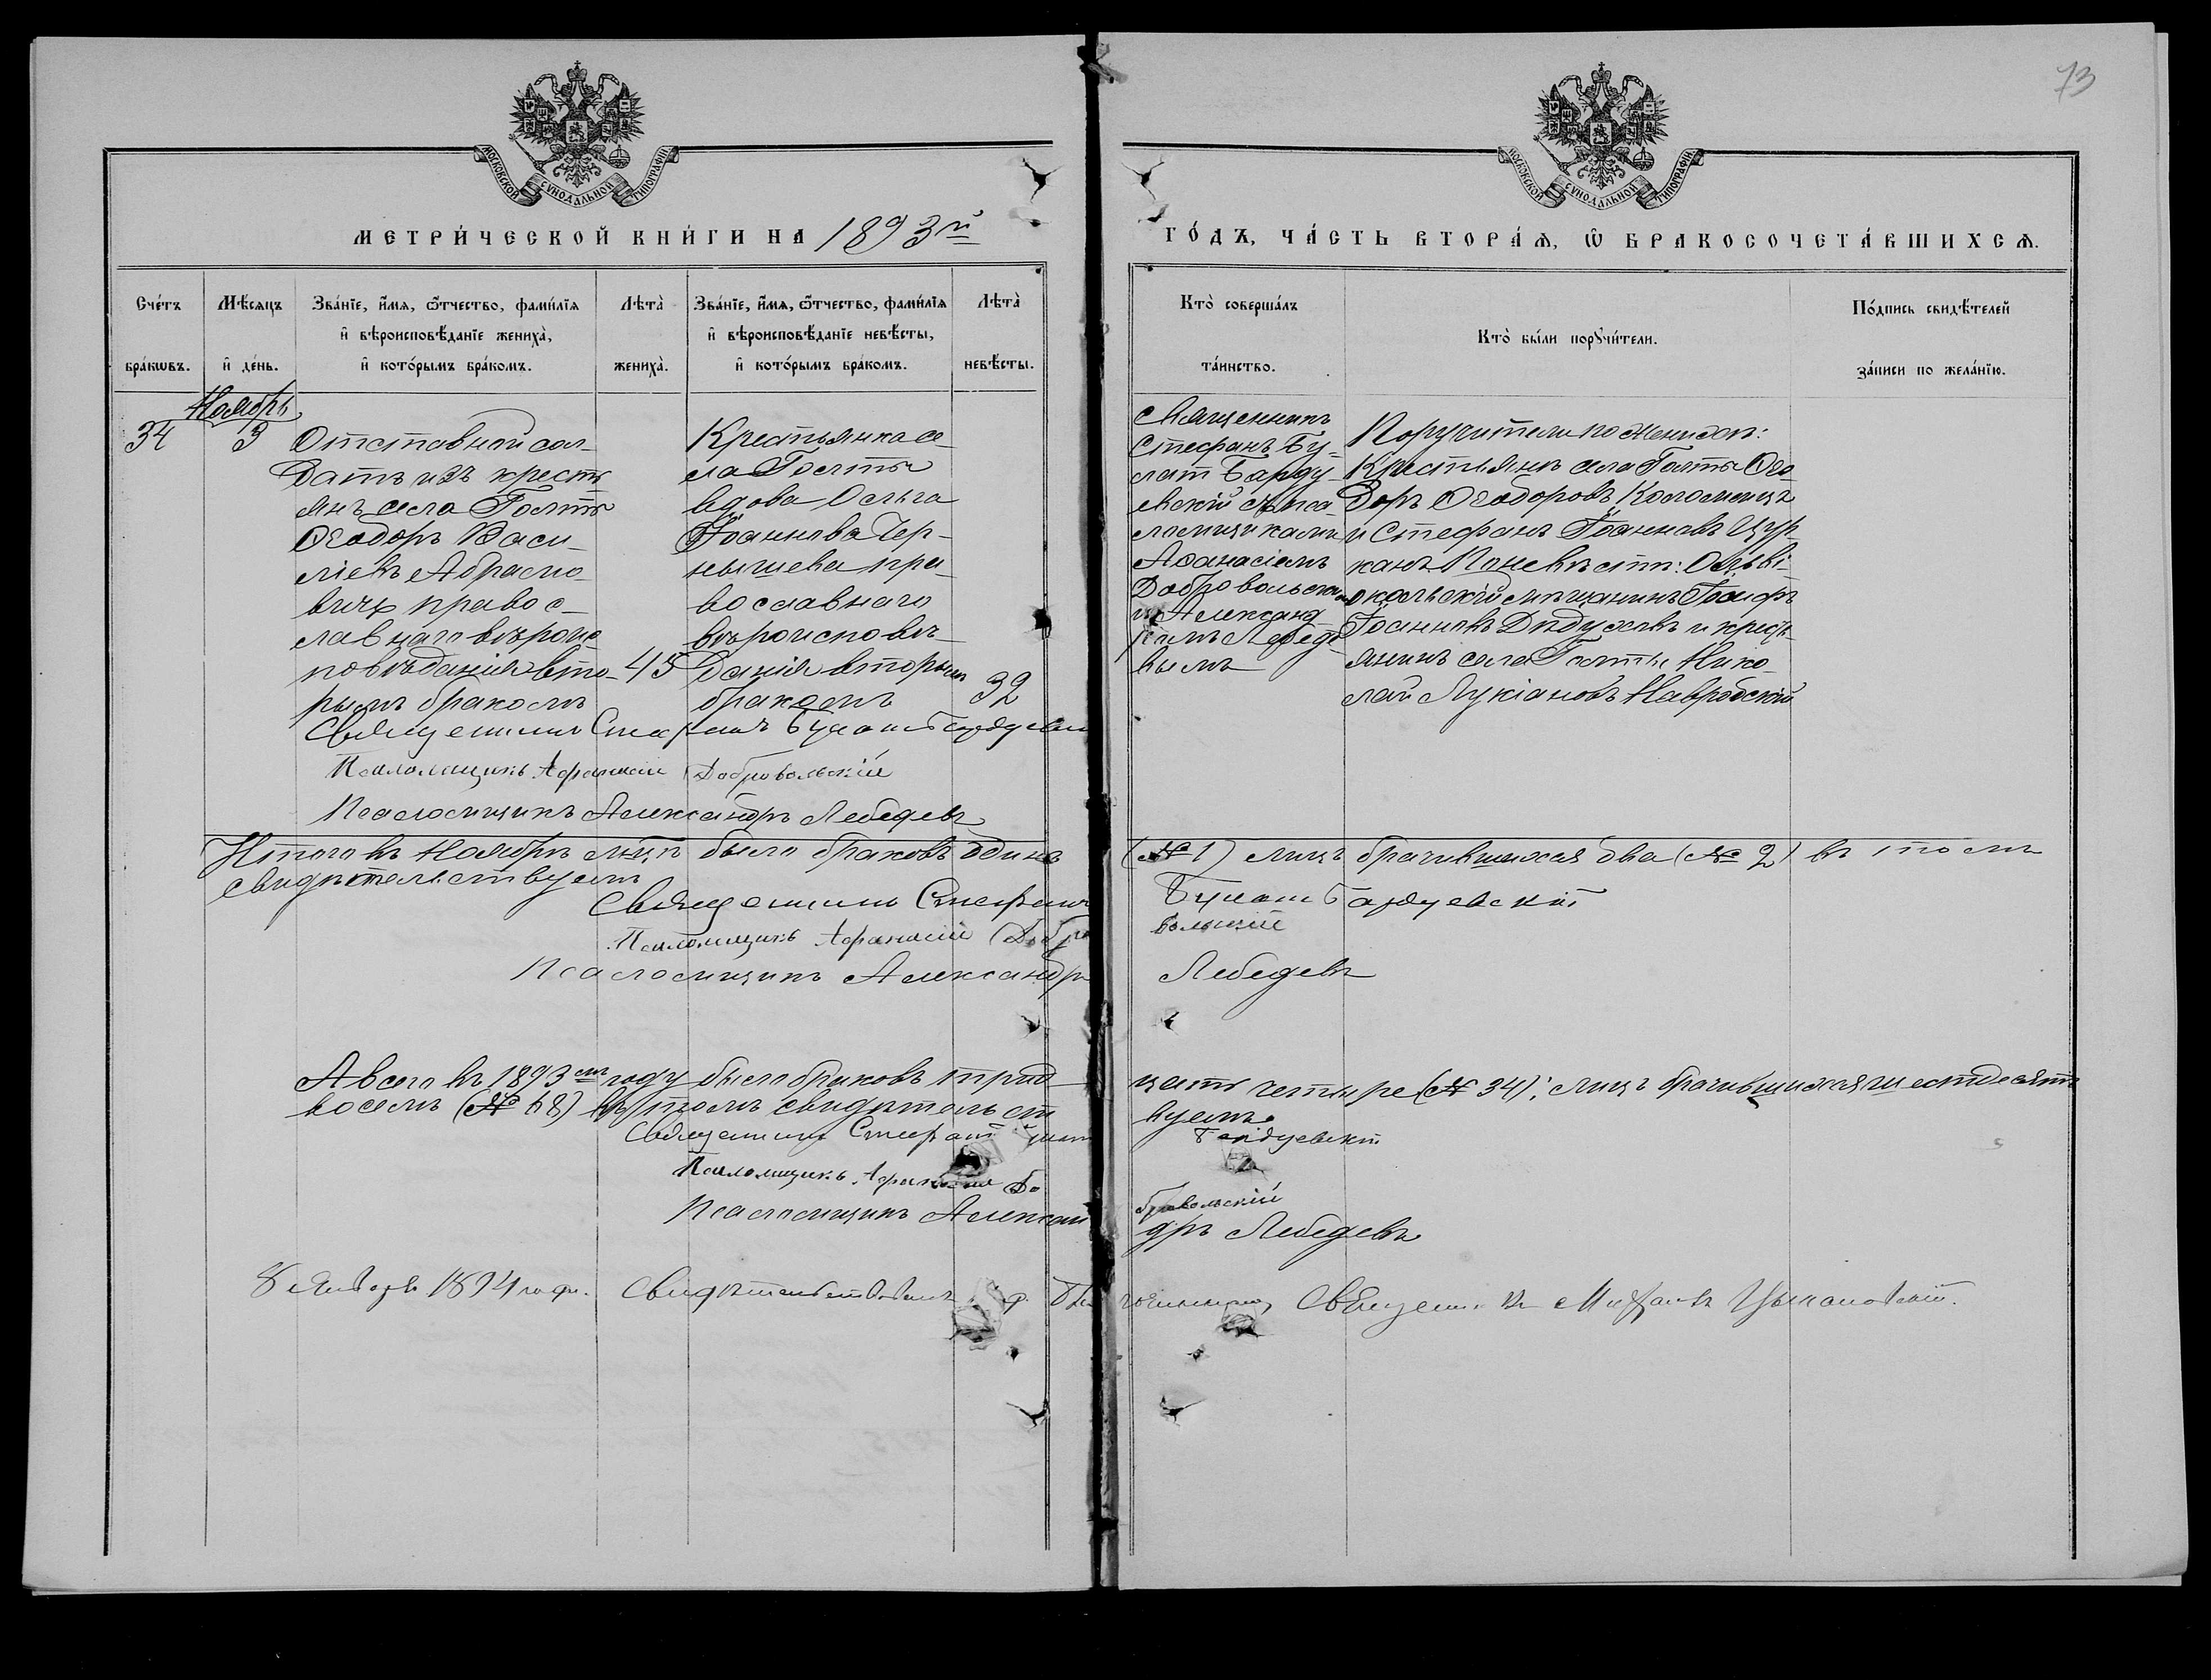 73
МОСКОВСКОЙ СѴНОДАЛЬНОЙ ТИПОГРАФІИ
МОСКОВСКОЙ СѴНОДАЛЬНОЙ ТИПОГРАФІИ
МЕТРИ́ЧЕСКОЙ КНИ́ГИ НА 1893й
ГО́ДЪ, ЧА́СТЬ ВТОРА́Ѧ, Ѡ҆ БРАКОСОЧЕТА́ВШИХСѦ.
Сче́тъ
бра́кѡвъ.
Мѣ́сяцъ
и҆ де́нь.
Зва́нїе, и҆́мѧ, ѻ҆́тчество, фами́лїѧ
и҆ вѣроисповѣ́данїе жениха̀,
и҆ кото́рымъ бра́комъ.
Лѣта̀
жениха̀.
Зва́нїе, и҆́мѧ, ѻ҆́тчество, фами́лїѧ
и҆ вѣроисповѣ́данїе невѣ́сты,
и҆ кото́рымъ бра́комъ.
Лѣта̀
невѣ́сты.
Кто̀ соверша́лъ
та́инство.
Кто̀ бы́ли порꙋчи́тели.
По́дпись свидѣ́телей
за́писи по жела́нїю.
Ноябрь
34
3
Отставной сол-
датъ изъ кресть
янъ села Голты
Ѳеодоръ Васи-
ліевъ Абрамо-
вичъ правос-
лавнаго вѣроис
повѣданія вто-
рымъ бракомъ
45
Крестьянка се-
ла Голты
вдова Ольга
Іоаннова Чер-
нышева пра-
вославнаго
вѣроисповѣ-
данія вторымъ
бракомъ
32
Священникъ
Стефанъ Бу-
лат Барду-
евскій съ пса-
ломщиками
Аѳанасіемъ
Добровольским
и Александ-
ромъ Лебеде-
вымъ
Поручители по женихѣ:
Крестьянъ села Голты Ѳео
доръ Ѳеодоровъ Коломіецъ
и Стефанъ Іоанновъ Цур
канъ По невѣстѣ: Ольві
опольскій мѣщанинъ Іосифъ
Іоанновъ Дѣдуховъ и кресть
янинъ села Голты Нико
лай Лукіановъ Навродскій
Священникъ Стефанъ Булат Бардуевскій
Псаломщикъ Афанасій Добровольскій
Псаломщикъ Александръ Лебедевъ
Итого въ Ноябрѣ мѣцѣ было браковъ одинъ (№ 1) лицъ брачившихся два (№ 2) въ томъ
свидѣтельствуемъ
Священникъ Стефанъ Булат Бардуевскій
Псаломщикъ Афанасій Добровольскій
Псаломщикъ Александръ Лебедевъ
А всего въ 1893мъ году было браковъ тридцать четыре (№ 34); лицъ брачившихся шестдесятъ
восемъ (№ 68) въ томъ свидѣтельствуемъ
Священникъ Стефанъ Бардуевскій
Псаломщикъ Афанасій Добровольскій
Псаломщикъ Александръ Лебедевъ
8 Января 1894 года. Свидѣтельствовалъ Священникъ Михаилъ